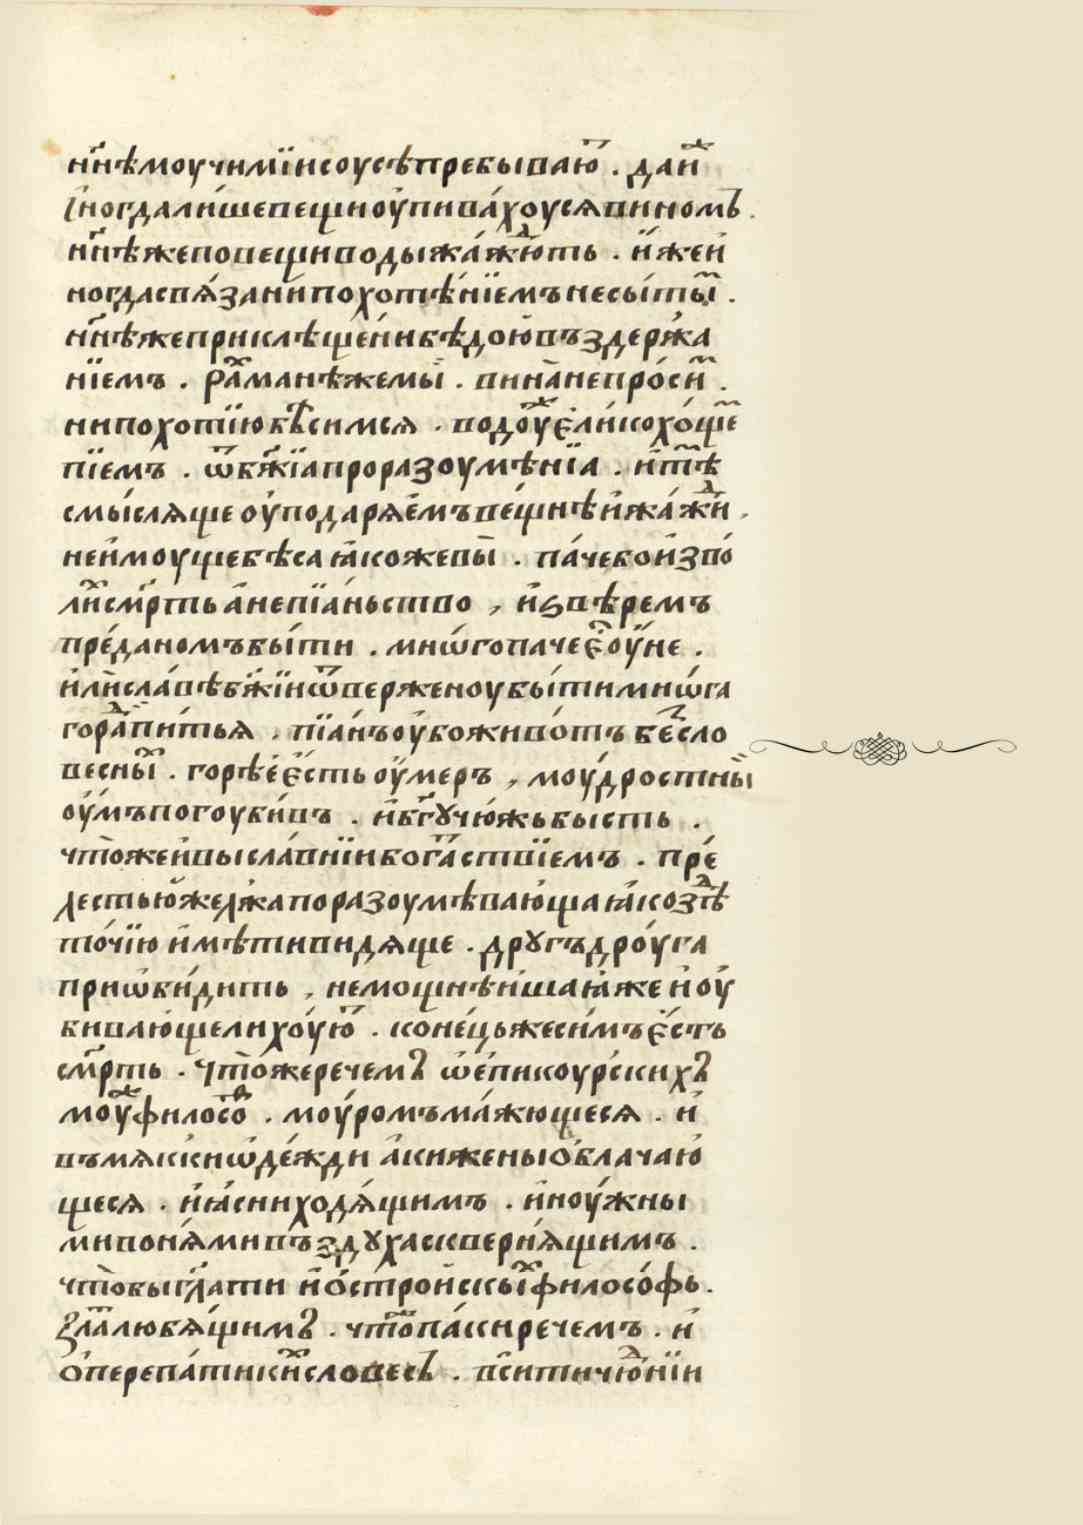 нн҃ѣмоучимїисоусѣпребываю҆т . даи҆ж
і҆ногдали́шевещноу҆пива́хоусѧвиномъ .
нн҃ѣжеповещиводыжа́жю҆ть . и҆же и҆
ногдасвѧ́занипохотѣ́нїемънесы́ты̏ .
нн҃ѣжепри клѣще́нибѣдою҆въздержа
нїемъ . ра҆́манѣжемы̀ . вина̀непро́си̏ .
нипохотїюбѣ́симсѧ . водоу҆є҆ли́кохо́ще
пїемъ . ѿбж҃їапроразоумѣ́нїа . и҆тѣ̏
смы́слѧщеоу҆подарѧе҆мъве́щнѣи҆жа́жи̏ .
неи҆моущебѣсаꙗ҆кожевы̀ . па́чебои҆зво́
ли̏см҃ртьа҆непїа́ньство , и҆ѕвѣ́ремъ
пре́даномъбы́ти . мнѡ́гопачеє҆моу́не .
и҆лѝсла́вѣбж҃їиѿверженоубы́тимнѡ́га
гора̏пи́тьꙗ . пїа́нъоу҆боживо́тъбе҆сло
весны̏ . горѣ́є҆є҆́стьоу҆́меръ , моу́дростны̀
оу҆́мъпогоуби́въ . и҆бг҃ꙋчю́жьбысть .
что̀жеи҆высла́внїибога̏ствїемъ . пре́
лестью҆желжапоразоумѣва́ющаꙗ҆коздѣ̏
то́чїю и҆мѣ́тивидѧще . дрꙋгъдро́уга
приѡби́дить , немощнѣ́ишаꙗ҆же и҆оу҆
бива́ющелихо́ую̏ . коне́цьжеси́мъє҆́сть
см҃рть . что̀жеречемъ ѡ҆е҆пикоурскихъ
моу҆ж филосо̏ф . моу́ромъма́жющесѧ . и҆
въмѧккиѡ҆де́жди а҆кижены̀о҆блачаю҆
щесѧ . и҆ꙗ҆снихoдѧ́щимъ . и҆ноу́жны
мивонѧ́мивъздꙋхаскверни́ѧщимъ .
что̀быгл҃ати и҆о҆строи҆скы̏филосо́фь .
ѕла̏любѧ́щимъ . что̏па́киречемъ . и҆
о҆перепа́тики̏словесъ . вси̏тичю҆нїи